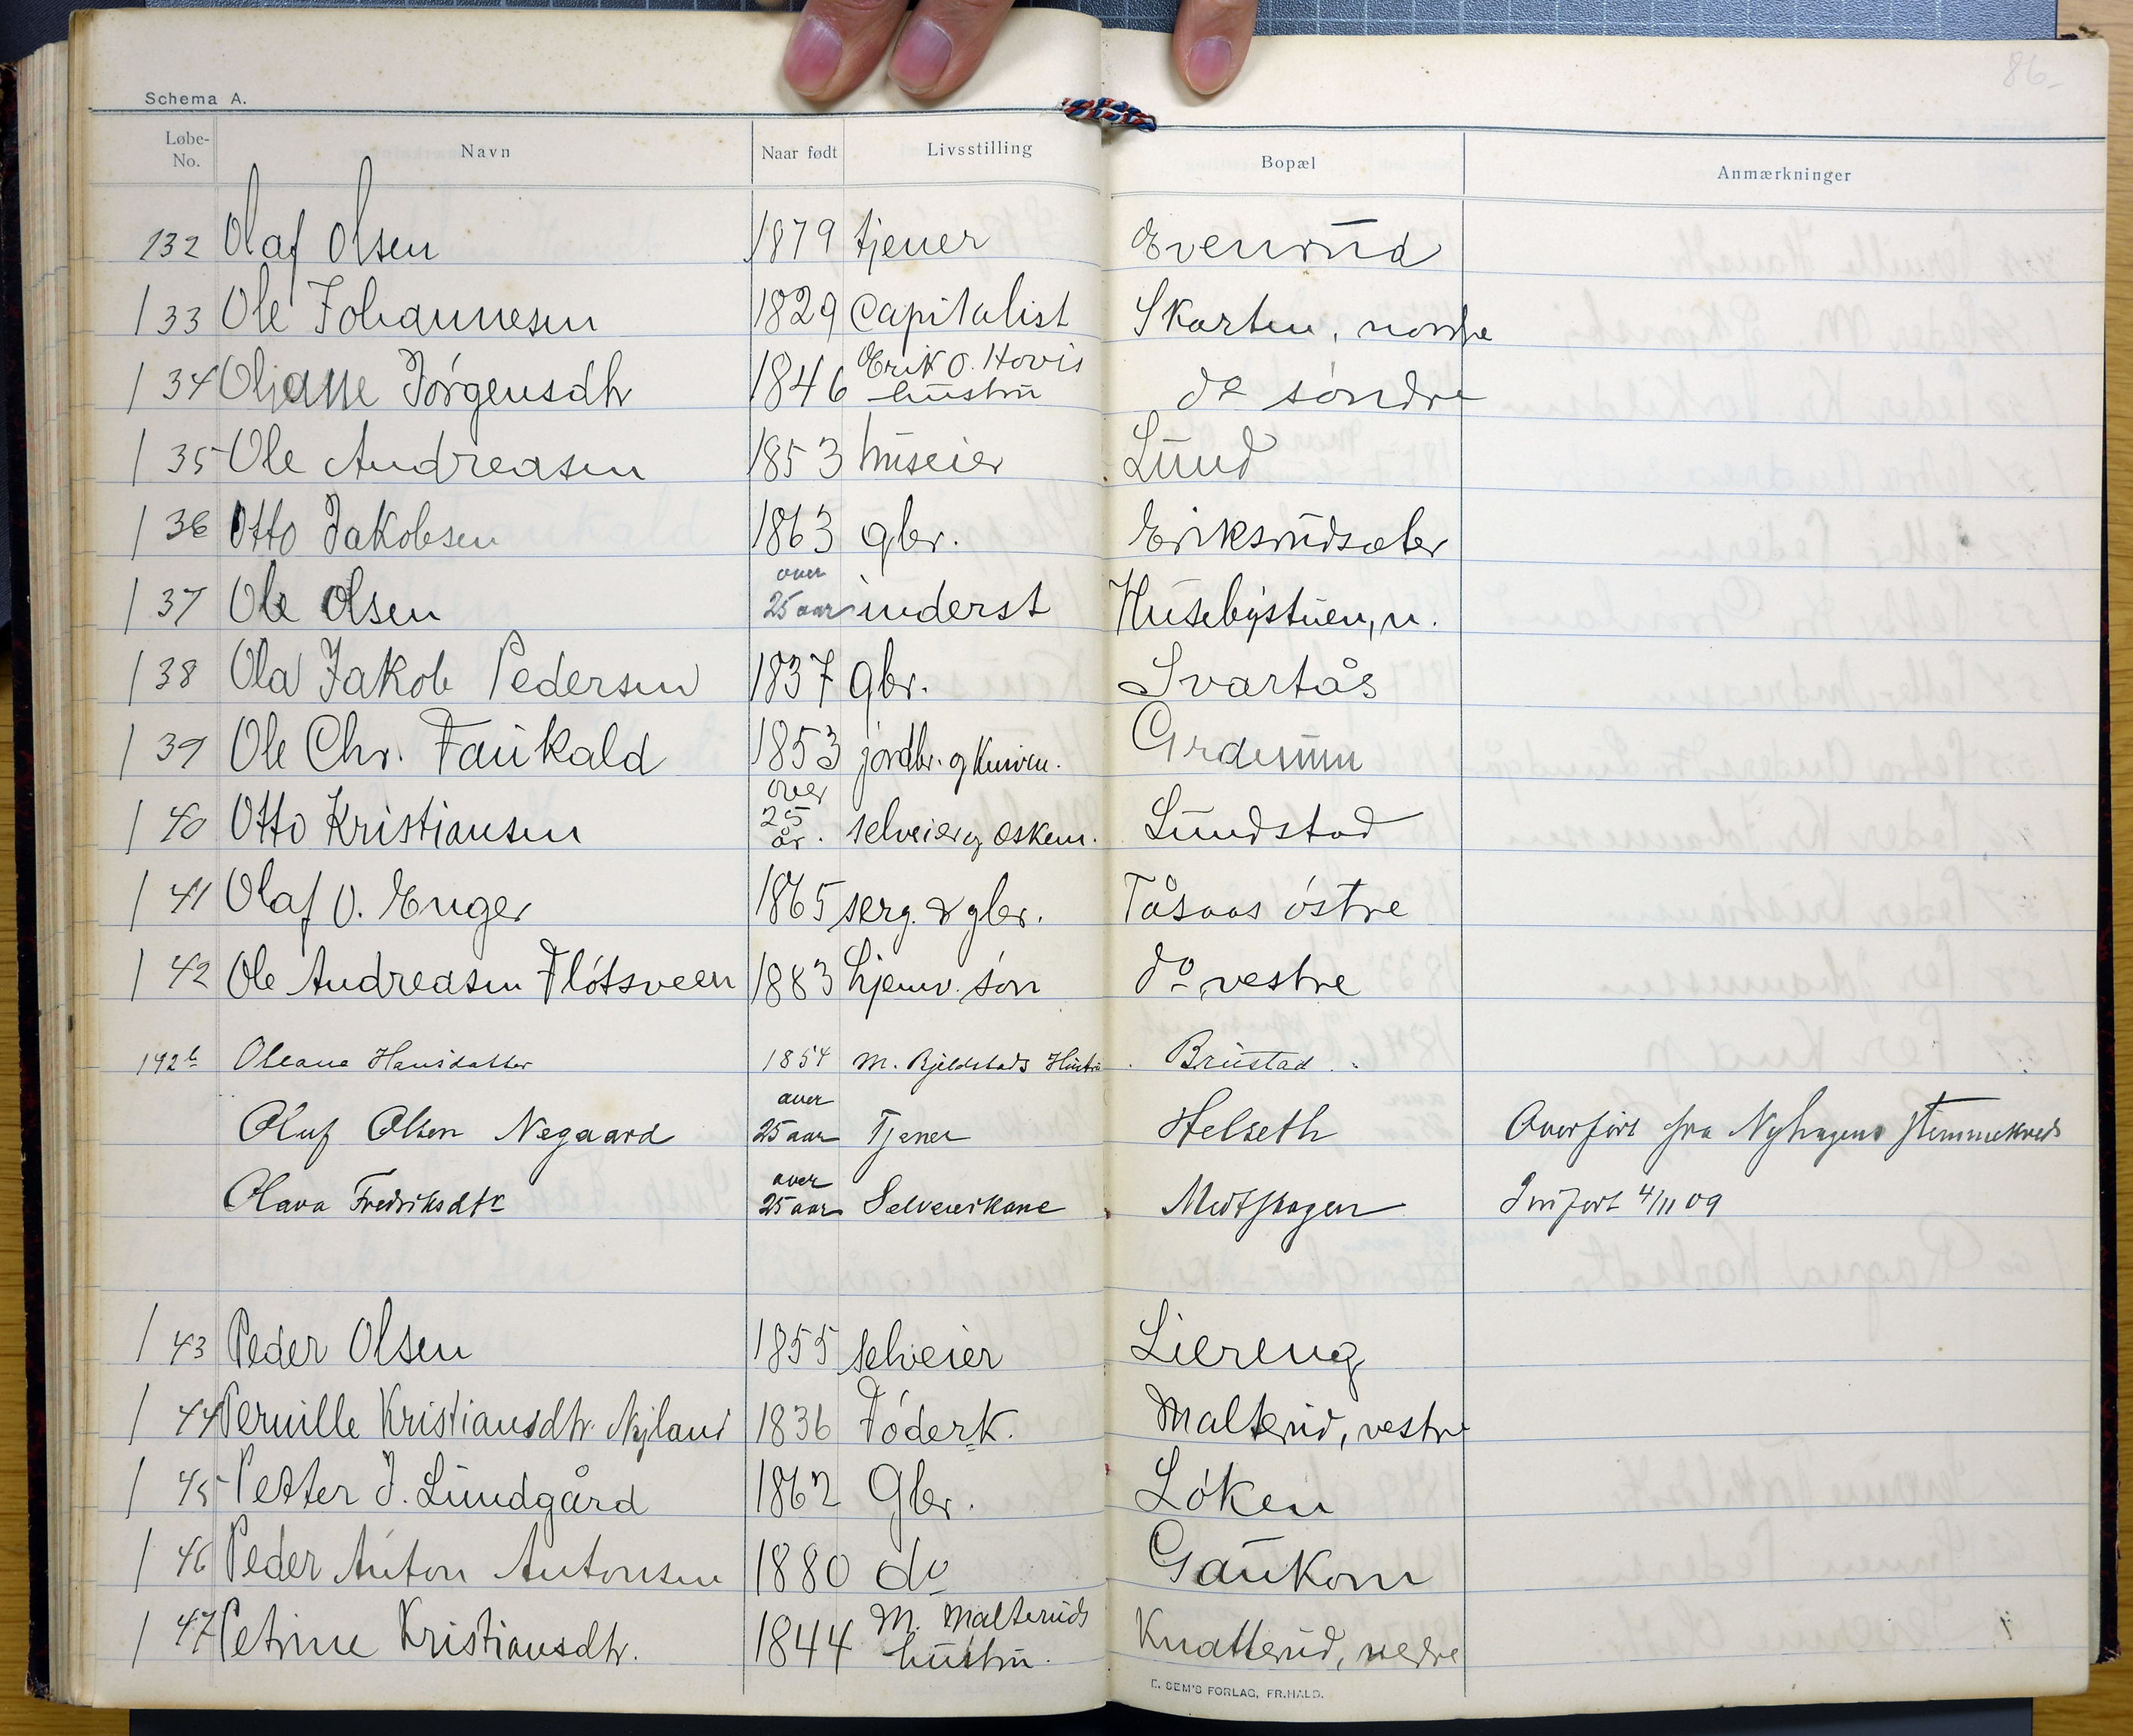 86.
Schema A.
Løbe-No. Navn Naar født Livsstilling Bopæl Anmærkninger
132 Olaf Olsen 1879 tjener Evenrud
133 Ole Johannesen 1829 Capitalist Skarten, nordre
134 Oljane Jørgensdtr 1846 Erik O. Hovis hustru do søndre
135 Ole Andreasen 1853 huseier Lund
136 Otto Jakobsen 1863 gbr. Eriksrudsæter
137 Ole Olsen over 25 aar inderst Husebystuen, n.
138 Ola Jakob Pedersen 1837 gbr. Svartås
139 Ole Chr. Faukald 1853 jordbr. og Grdemm
140 Otto Kristiansen over 25 år. selveier og Lundstad
141 Olaf O. Enger 1865 serg. & gbr. Tåsaas østre
142 Ole Andreasen Fløtsveen 1883 hjemv. søn do vestre
142b Oleana Hansdatter 1854 M. Bjeldstads Hustru Brustad
Oluf Olsen Negaard over 25 aar Tjener Helseth Overført fra Nyhagens Stemmekreds
Olava Fredriksdtr over 25 aar Selveierkone Midtskogen Indført 4/11 09
143 Peder Olsen 1855 selveier Liereng
144 Pernille Kristiansdtr. Nyland 1836 Føderk. Malterud, vestre
145 Petter J. Lundgård 1862 Gbr. Løken
146 Peder Anton Antonsen 1880 do Gaukom
147 Petrine Kristiansdtr. 1844 M. Malteruds hustru. Knatterud, nedre
E. SEM'S FORLAG, FR.HALD.